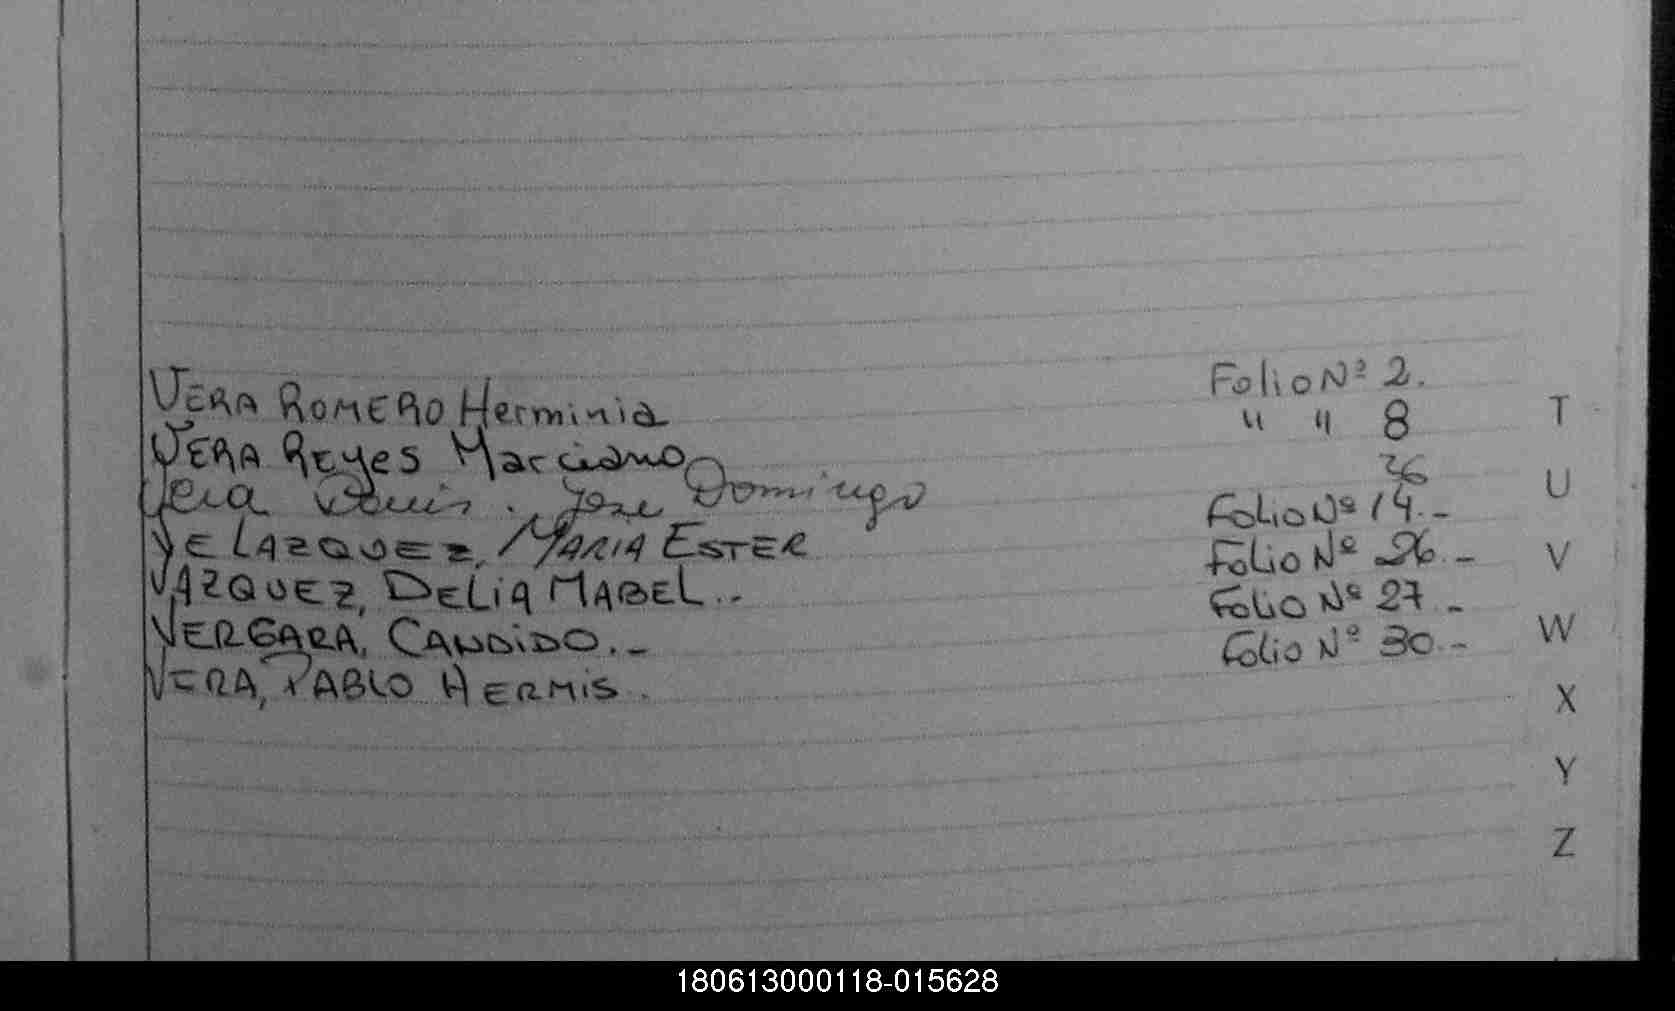 VERA ROMERO Herminia Folio Nº 2.
VERA Reyes Marciano " " 8
Vera Jose Domingo 36
VELAZQUEZ, MARIA ESTER Folio Nº 14.-
VAZQUEZ, DELIA MABEL.- Folio Nº 26.-
VERGARA, CANDIDO.- Folio Nº 27.-
VERA, PABLO HERMIS. Folio Nº 30.-
T
U
V
W
X
Y
Z
180613000118-015628